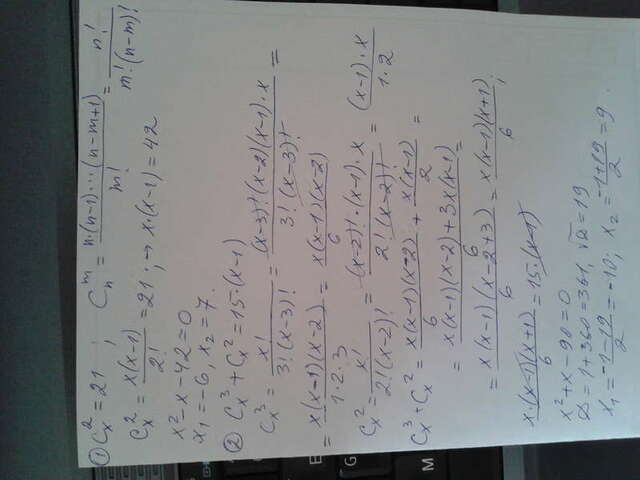 ① C_x^2 = 21 ; C_n^m = n·(n-1)···(n-m+1) / m! = n! / m!(n-m)!
C_x^2 = x(x-1) / 2! = 21 ; → x·(x-1) = 42
x² - x - 42 = 0
x₁ = -6, x₂ = 7.
② C_x^3 + C_x^2 = 15·(x-1)
C_x^3 = x! / 3!(x-3)! = (x-3)!(x-2)(x-1)·x / 3!(x-3)! =
= x(x-1)(x-2) / 1·2·3 = x(x-1)(x-2) / 6
C_x^2 = x! / 2!(x-2)! = (x-2)!·(x-1)·x / 2!(x-2)! = (x-1)·x / 1·2
C_x^3 + C_x^2 = x(x-1)(x-2) / 6 + x(x-1) / 2 =
= x(x-1)(x-2) + 3x(x-1) / 6 =
= x(x-1)(x-2+3) / 6 = x(x-1)(x+1) / 6 ;
x·(x-1)(x+1) / 6 = 15·(x-1)
x² + x - 90 = 0
D = 1 + 360 = 361, √D = 19
x₁ = -1-19 / 2 = -10; x₂ = -1+19 / 2 = 9.